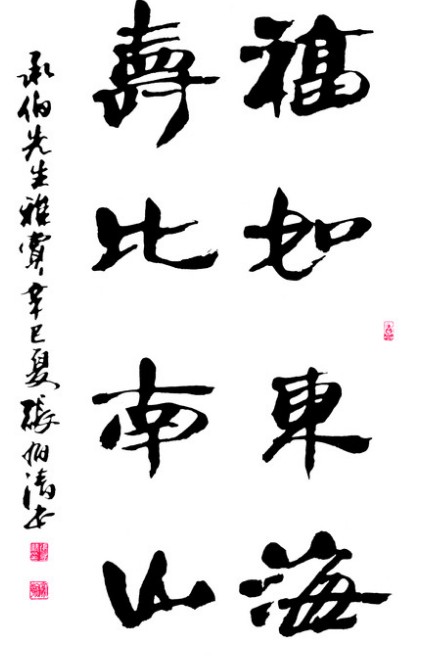 福如東海
壽比南山
承伯先生雅賞辛巳夏張伯濤書